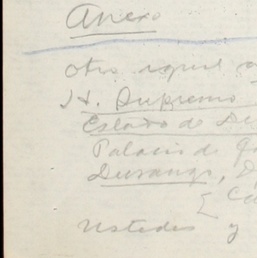 Anexo
Otro igual a
H. Supremo
Estado de Du
Palacio de go
Durango, D
[ Co
Ustedes y